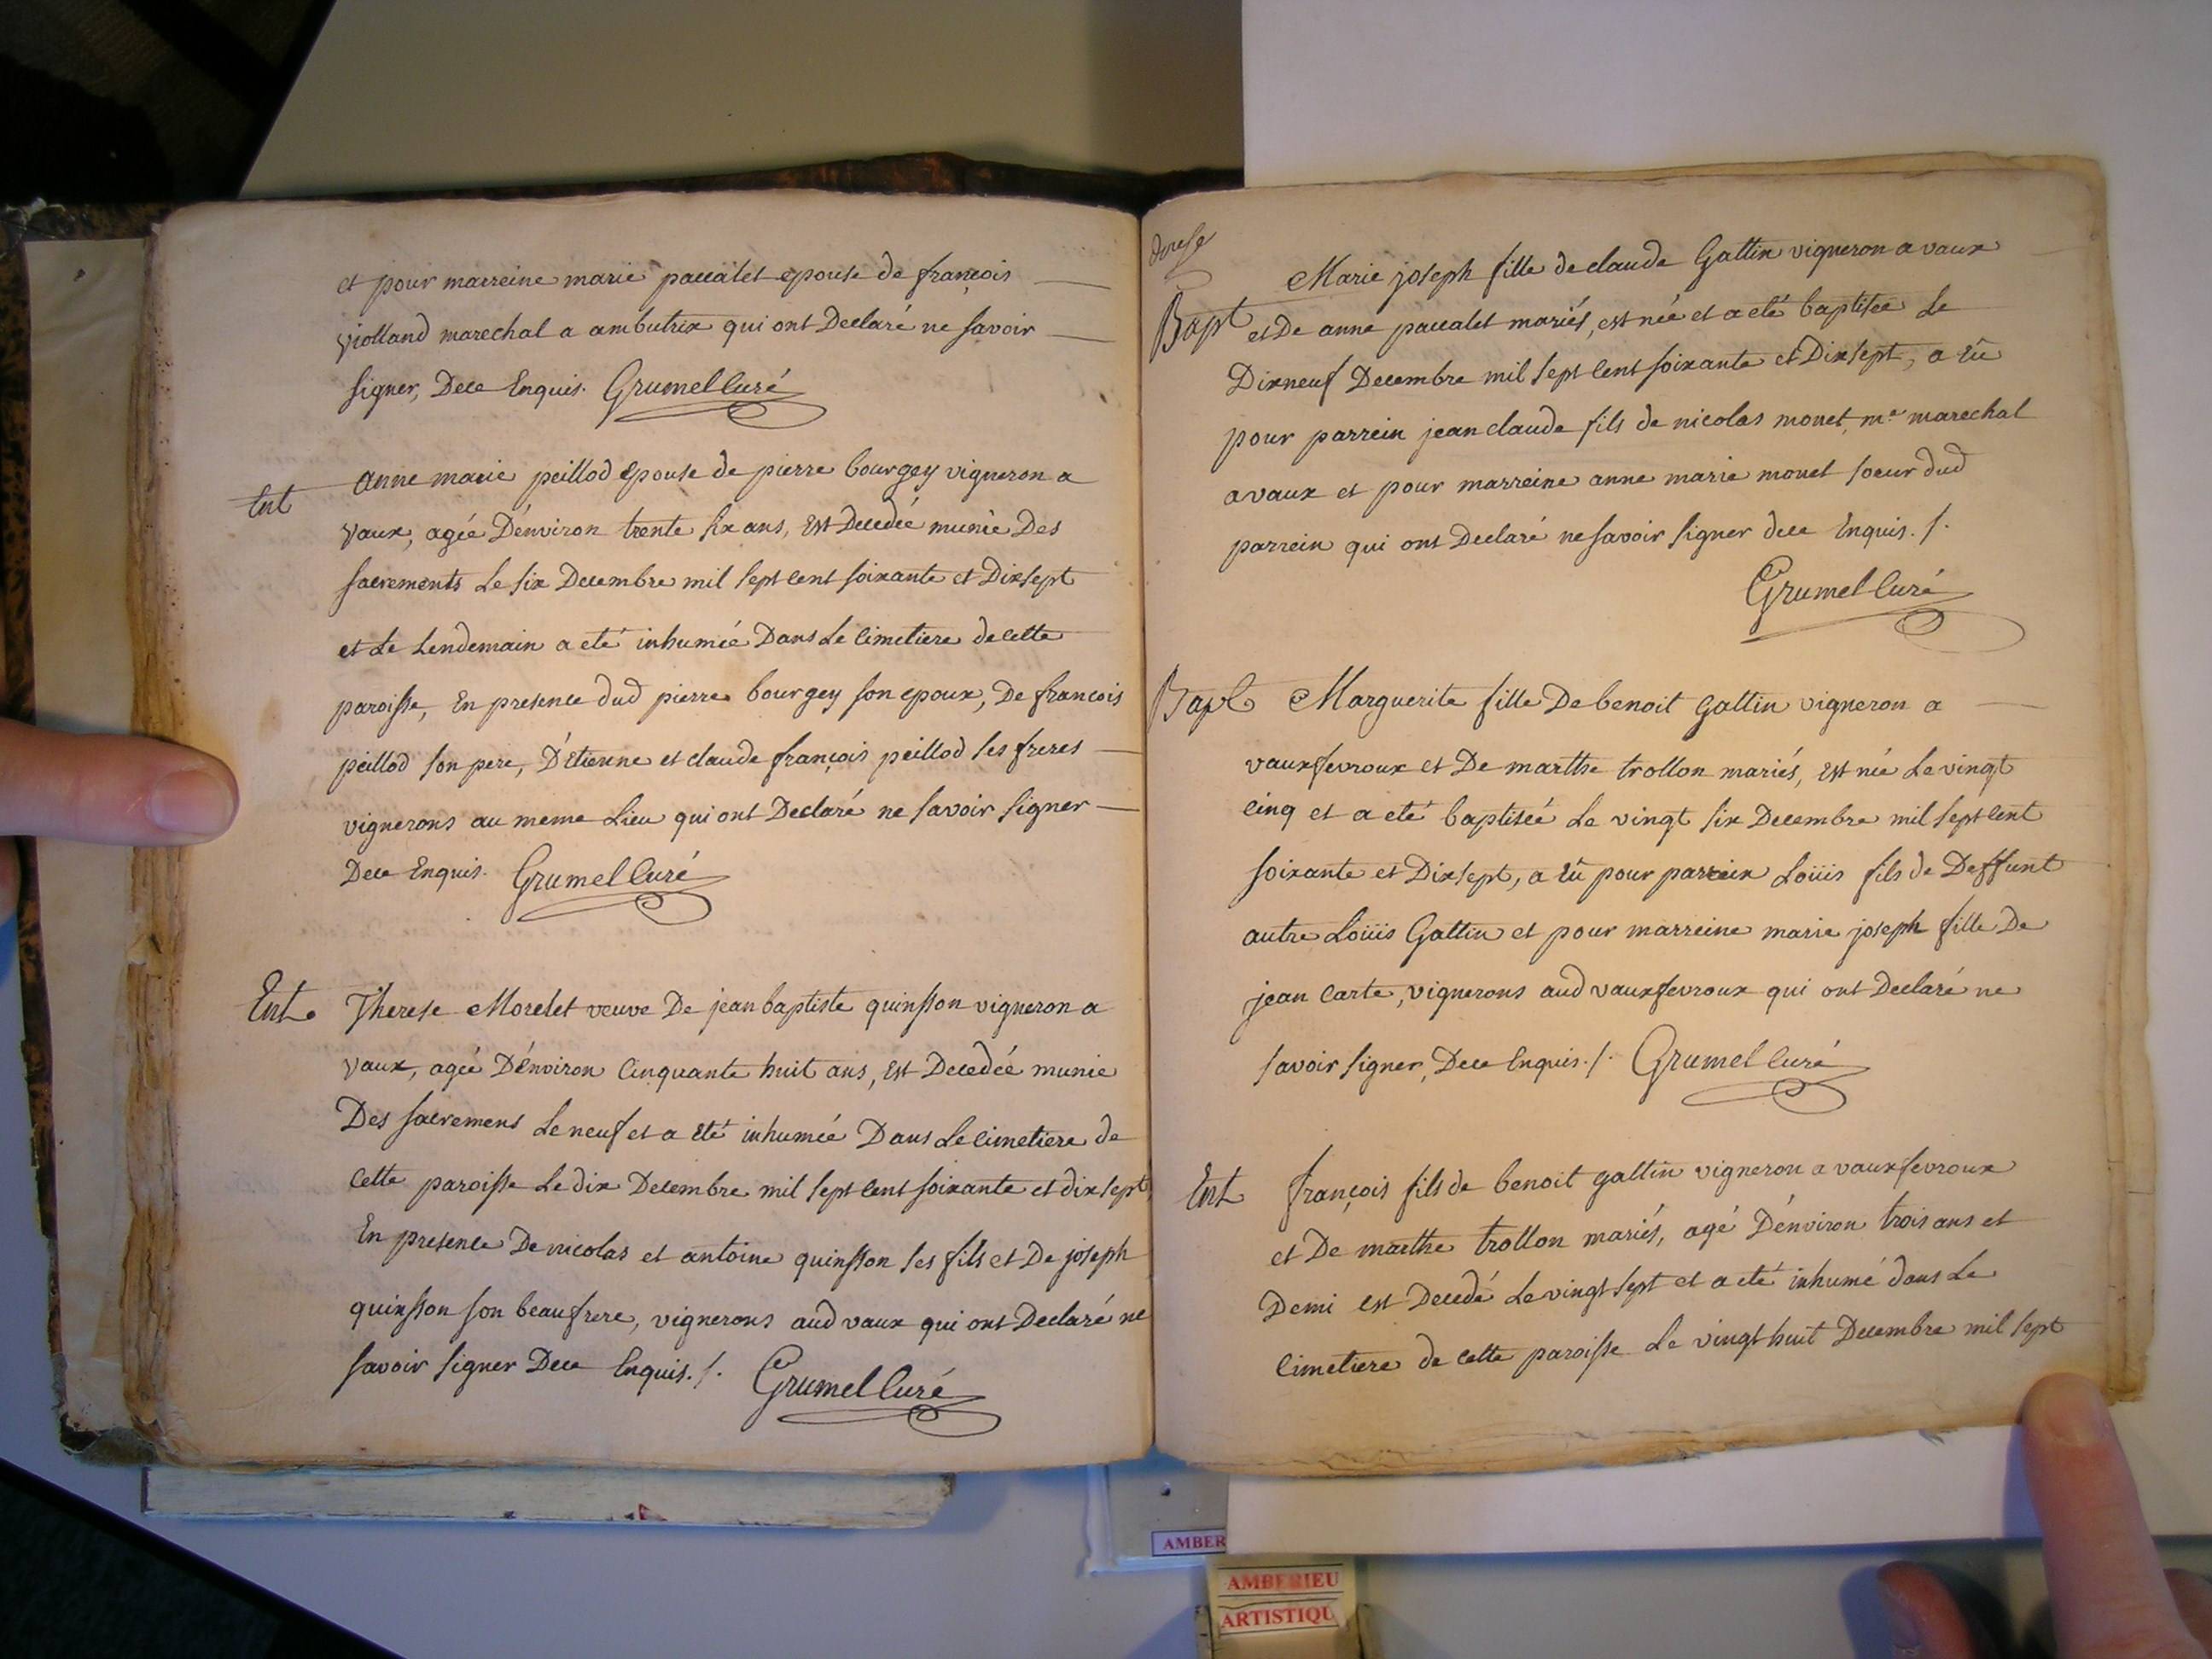 et pour marreine marie paccalet epouse de françois
violland marechal a ambutrix qui ont Declaré ne savoir
signer, Dece Enquis. Grumel Curé
Ent
anne marie peillod epouse de pierre bourgey vigneron a
vaux, agée D'énviron trente six ans, Est Decedée munie Des
sacrements Le six Decembre mil sept cent soixante et Dixsept
et Le Lendemain a eté inhumée Dans Le cimetiere de cette
paroisse, En presence dud pierre bourgey son epoux, De francois
peillod son pere, D'Etienne et claude françois peillod ses freres
vignerons au meme Lieu qui ont Declaré ne savoir signer
Dece Enquis. Grumel Curé
Ent.
Therese Morelet veuve De jean baptiste quinsson vigneron a
vaux, agée D'énviron Cinquante huit ans, Est Decedée munie
Des sacremens Le neuf et a Eté inhumée Dans Le cimetiere de
Cette paroisse Le dix Decembre mil sept cent soixante et dix sept
En presence De nicolas et antoine quinsson ses fils et De joseph
quinsson son beaufrere, vignerons aud vaux qui ont Declaré ne
savoir signer Dece Enquis. /. Grumel Curé
douse
Bapt
Marie joseph fille de claude Gattin vigneron a vaux
et De anne paccalet mariés, est née et a eté baptisée Le
Dixneuf Decembre mil sept cent soixante et Dixsept, a Eü
pour parrein jean claude fils de nicolas monet, me marechal
a vaux et pour marreine anne marie monet soeur dud
parrein qui ont Declaré ne savoir signer dece Enquis. /.
Grumel Curé
Bapt
Marguerite fille De benoit gattin vigneron a
vauxfevroux et De marthe trollon mariés, Est née Le vingt
cinq et a eté baptisée Le vingt six Decembre mil sept cent
soixante et Dixsept, a Eü pour parrein Loüis fils de Deffunt
autre Loüis Gattin et pour marreine marie joseph fille De
jean Carte, vignerons aud vauxfevroux qui ont Declaré ne
savoir signer, Dece Enquis. /. Grumel Curé
Ent
françois fils de benoit gattin vigneron a vauxfevroux
et De marthe trollon mariés, agé D'énviron trois ans et
Demi est Decedé Le vingt sept et a eté inhumé dans Le
Cimetiere de cette paroisse Le vingt huit Decembre mil sept
AMBER
AMBERIEU
ARTISTIQU